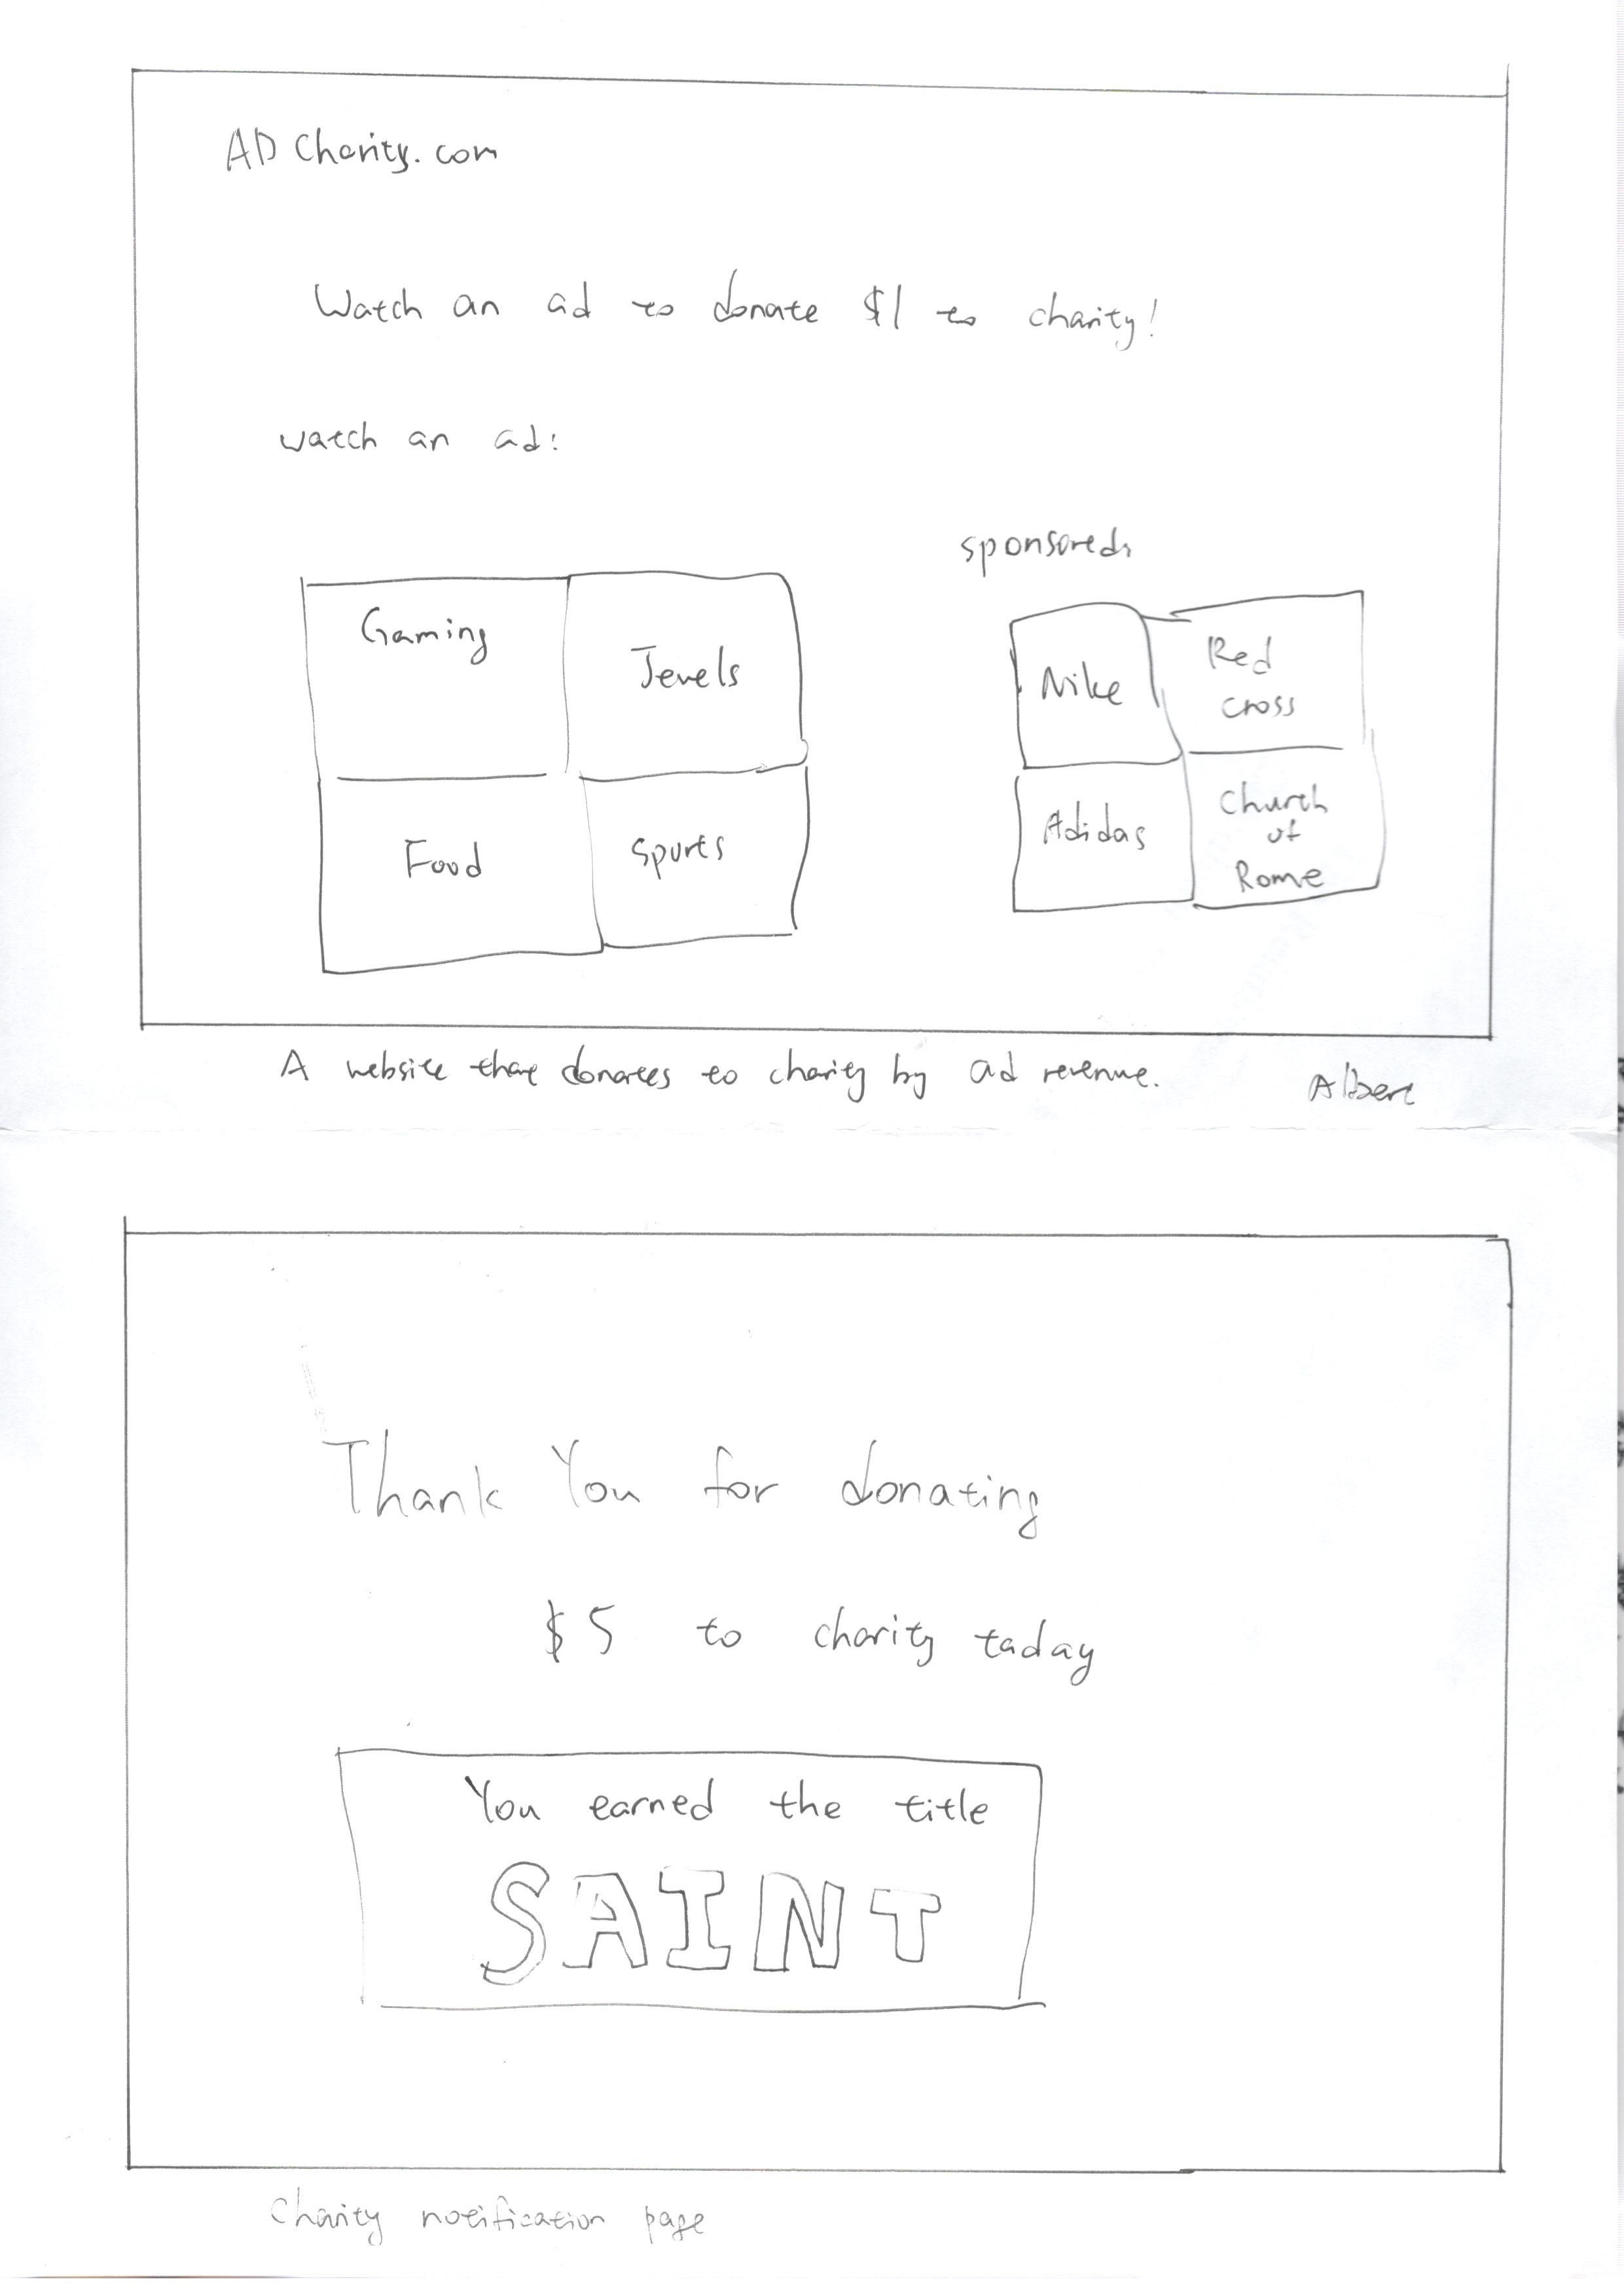 AD Charity.com
Watch an ad to donate $1 to charity!
watch an ad:
sponsored:
Gaming
Jewels
Food
Sports
Nike
Red
cross
Adidas
Church
of
Rome
A website that donates to charity by ad revenue.
Albert
Thank You for donating
$5 to charity taday
You earned the title
SAINT
Charity notification page